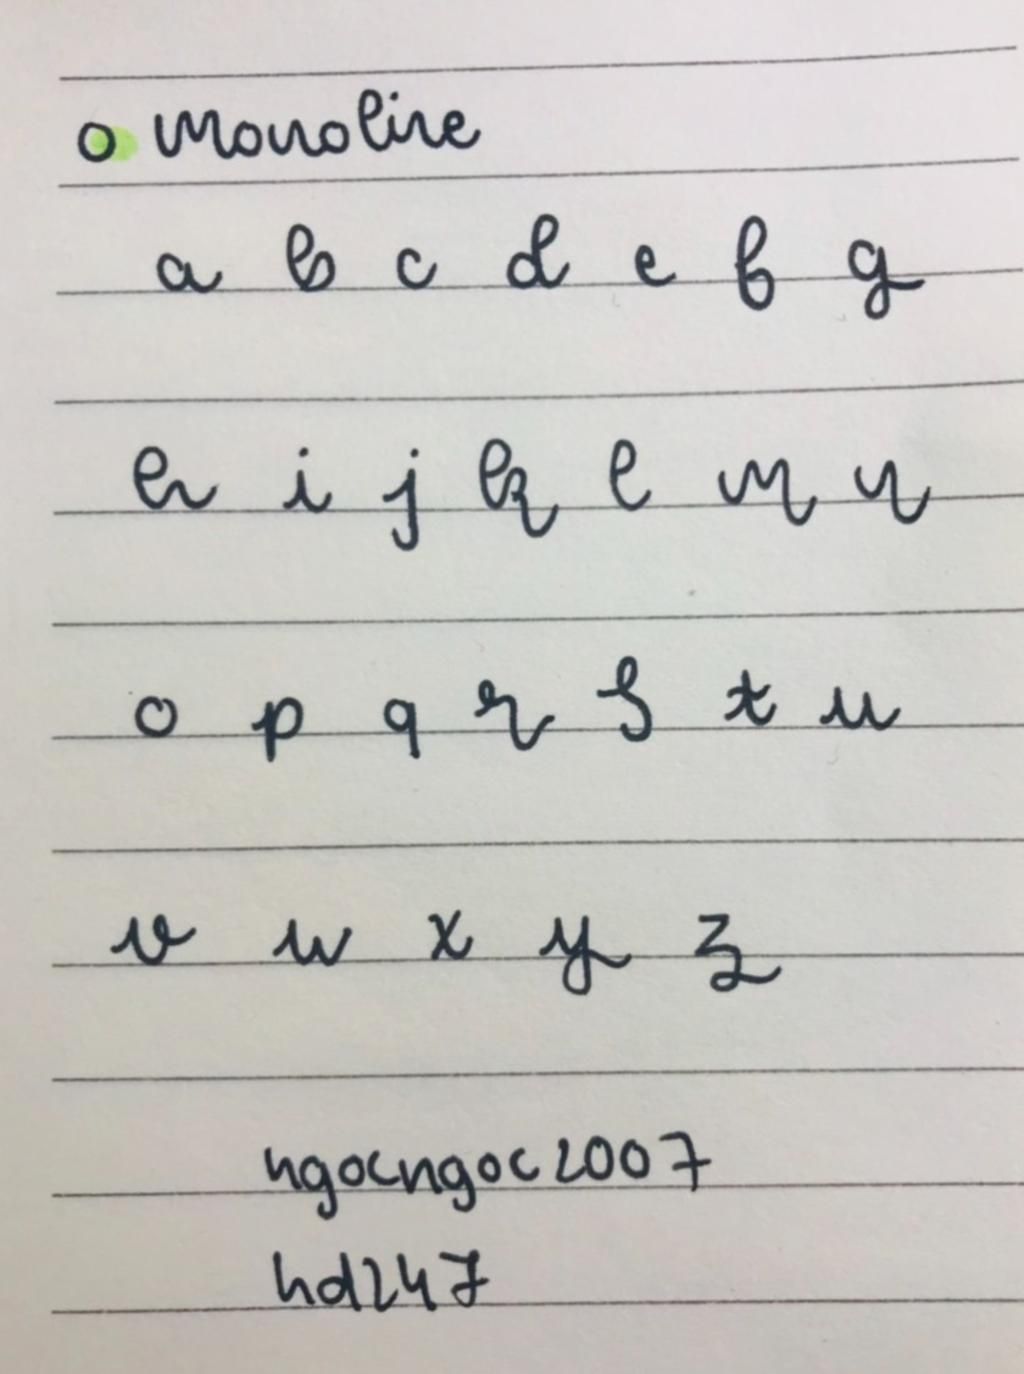 o Monoline
a b c d e f g
h i j k l m n
o p q r s t u
v w x y z
ngocngoc2007
hd247